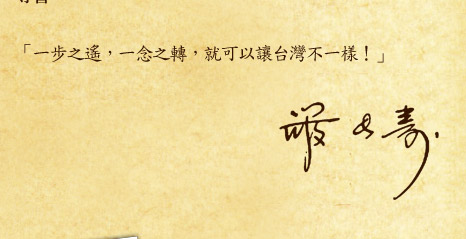 「一步之遙，一念之轉，就可以讓台灣不一樣！」
嚴長壽